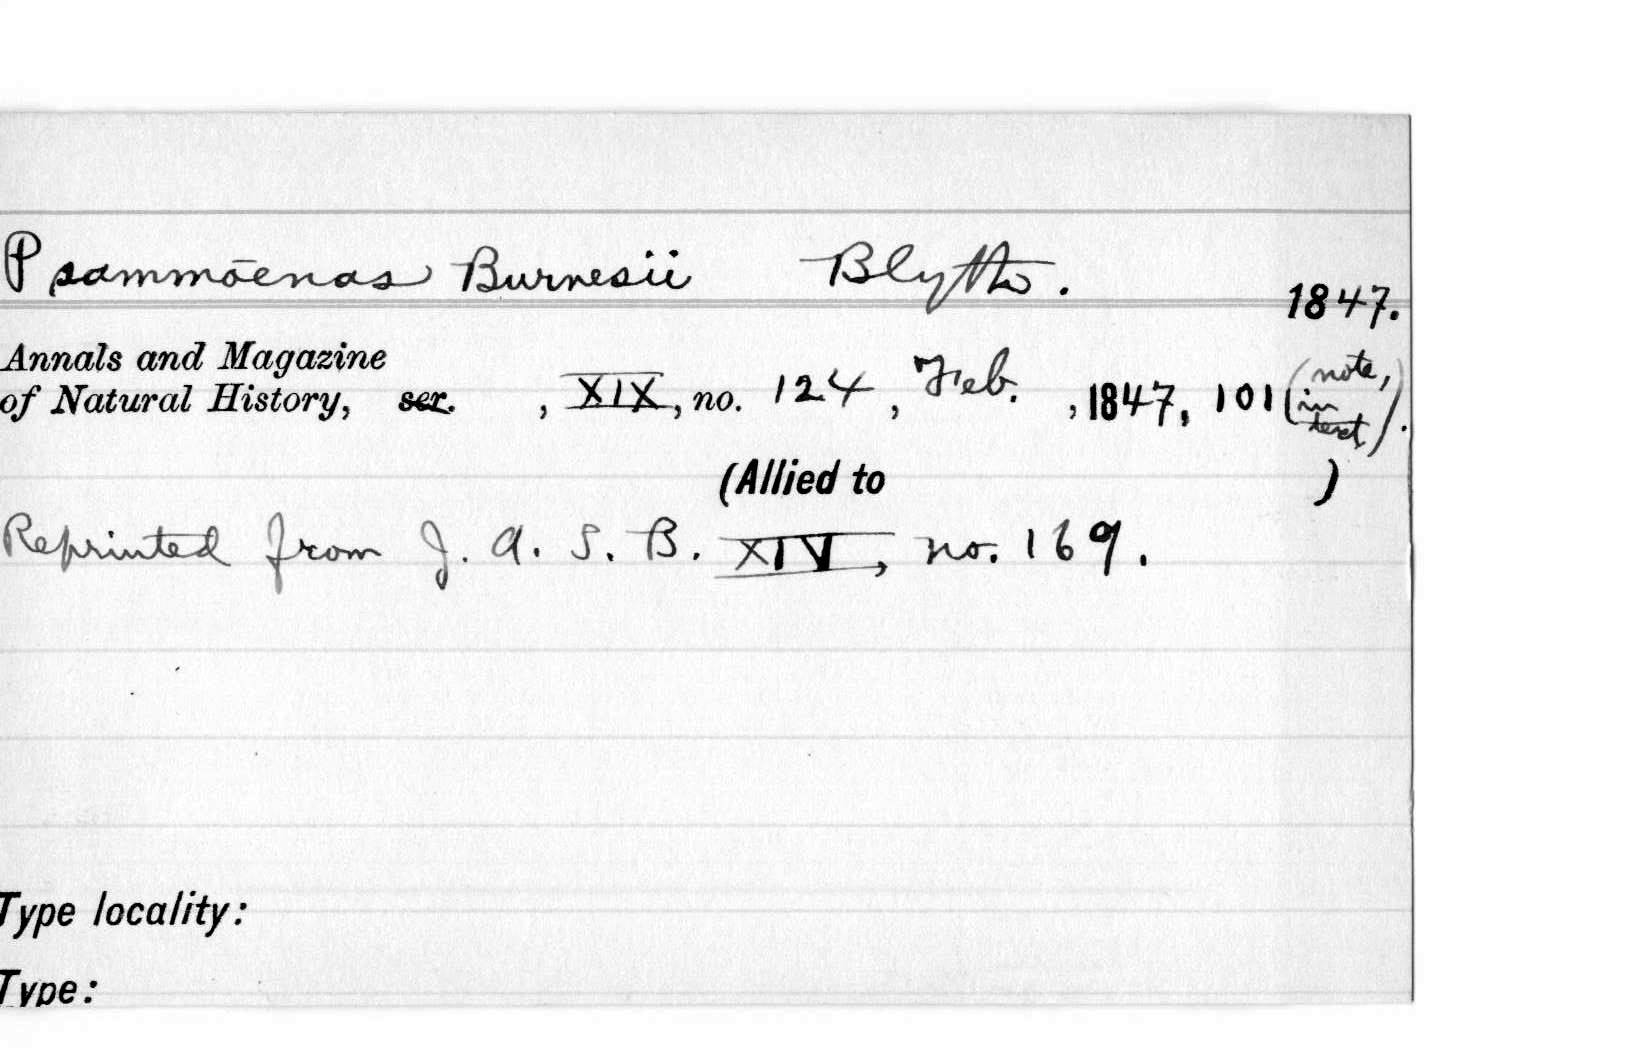 Psammōenas Burnesii Blyth. 1847.
Annals and Magazine
of Natural History, ser. , XIX, no. 124, Feb. , 1847, 101 (note, in text).
(Allied to )
Reprinted from J. A. S. B. XIV, no. 169.
Type locality:
Type: